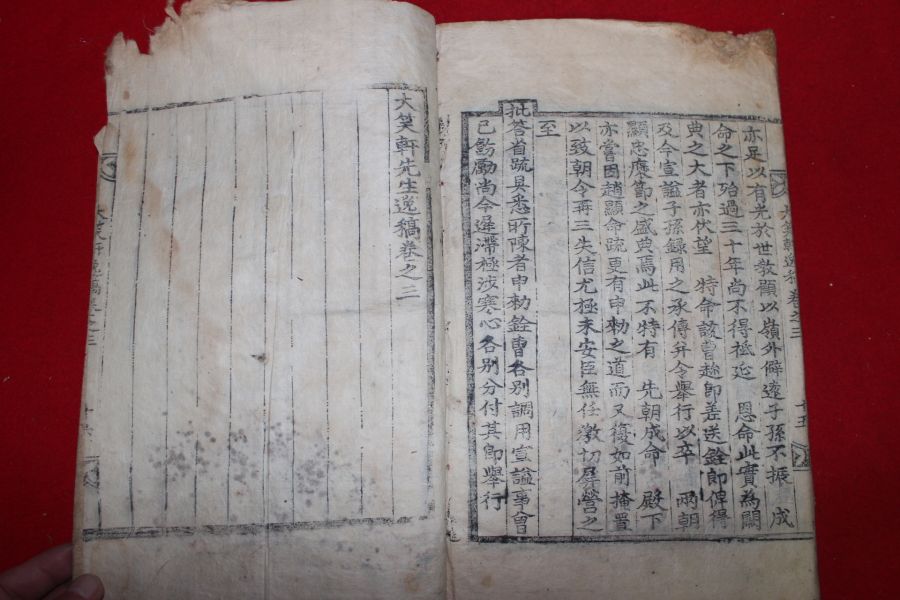 大笑軒逸稿 卷之三
十五
亦足以有光於世敎顧以嶺外僻遠子孫不振 成
命之下殆過三十年尚不得祗延 恩命此實為闕
典之大者亦伏望 特命該曹趂即差送銓郎俾得
及今宣謚子孫錄用之承傳并令舉行以卒 兩朝
顯忠應節之盛典焉此不特有 先朝成命 殿下
亦嘗因趙顯命疏更有申勑之道而又復如前掩置
以致朝令再三失信尤極未安臣無任激切屏營之
至
批答省疏具悉所陳者申勑銓曹各別調用宣謚事曾
已飭勵尚今遲滯極涉寒心各別分付其即舉行
大笑軒先生逸稿卷之三
大笑軒逸稿卷之三
十六